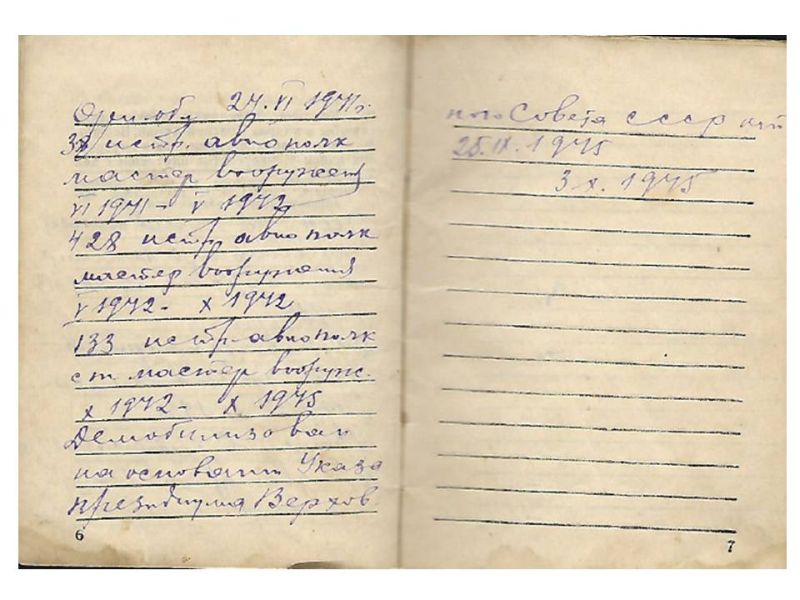 24. VI 1941г.
истр. авиополк
мастер вооружения
VI 1941 - V 1942
428 истр авиополк
мастер вооружения
V 1942 - X 1942
133 истр. авиополк
ст мастер вооруж.
X 1942 - X 1945
Демобилизован
на основании Указа
президиума Верхов
6
ного Совета СССР
25.IX.1945
3 X. 1945
7